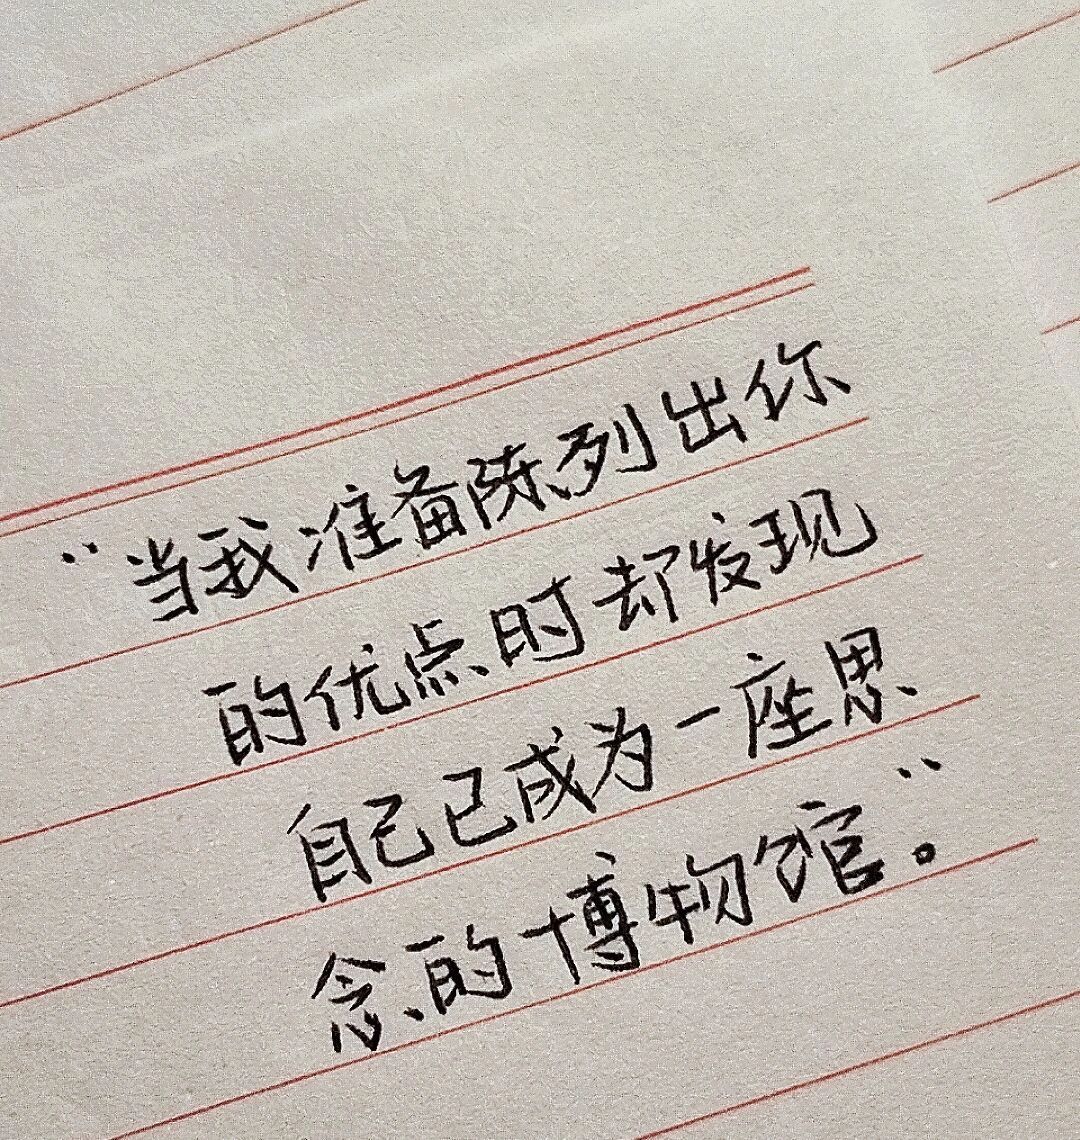 “当我准备陈列出你
的优点时却发现
自己已成为一座思
念的博物馆。”